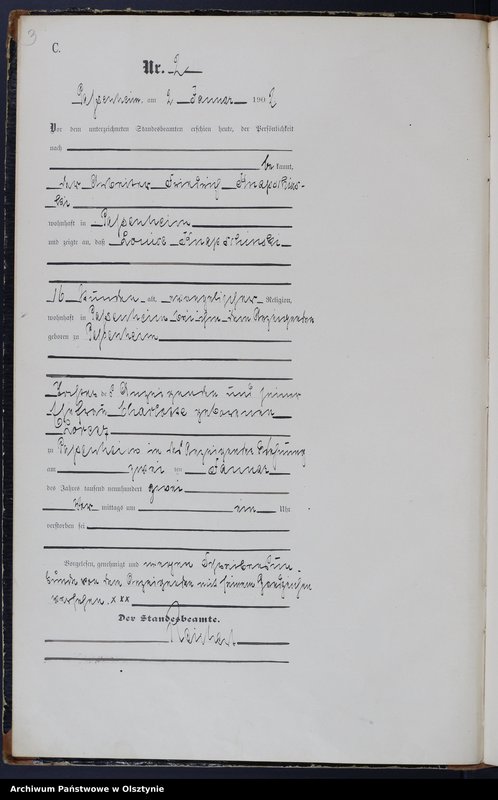 3
C.
Nr. 2
Passenheim am 2 Januar 1902
Vor dem unterzeichneten Standesbeamten erschien heute, der Persönlichkeit
nach
be kannt,
der Arbeiter Friedrich
wohnhaft in Passenheim
und zeigte an, daß Louise
16 Stunden alt, evangelischer Religion,
wohnhaft in Passenheim bei ihm dem Anzeigenden
geboren zu Passenheim
Tochter des Anzeigenden und seiner
Ehefrau Charlotte geborenen
zu Passenheim in des Anzeigenden Wohnung
am zwei ten Januar
des Jahres tausend neunhundert zwei
Vor mittags um ein Uhr
verstorben sei
Vorgelesen, genehmigt und wegen Schreibensun-
kunde von dem Anzeigenden mit seinem Handzeichen
versehen. xxx
Der Standesbeamte.
Archiwum Państwowe w Olsztynie